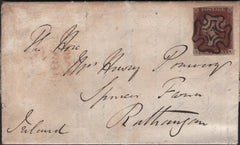 The Hon
Mrs Henry Pomeroy
Spencer Farm
Rathangan
Ireland